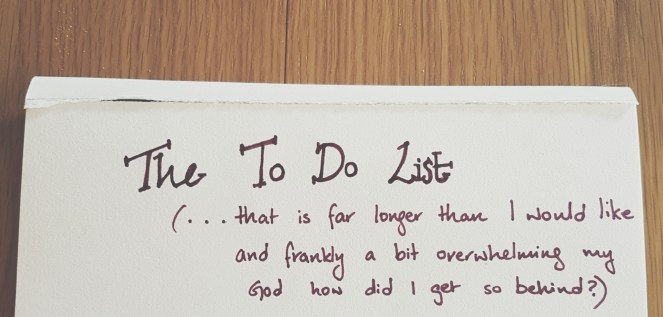 The To Do List
(...that is far longer than I would like
and frankly a bit overwhelming my
God how did I get so behind?)